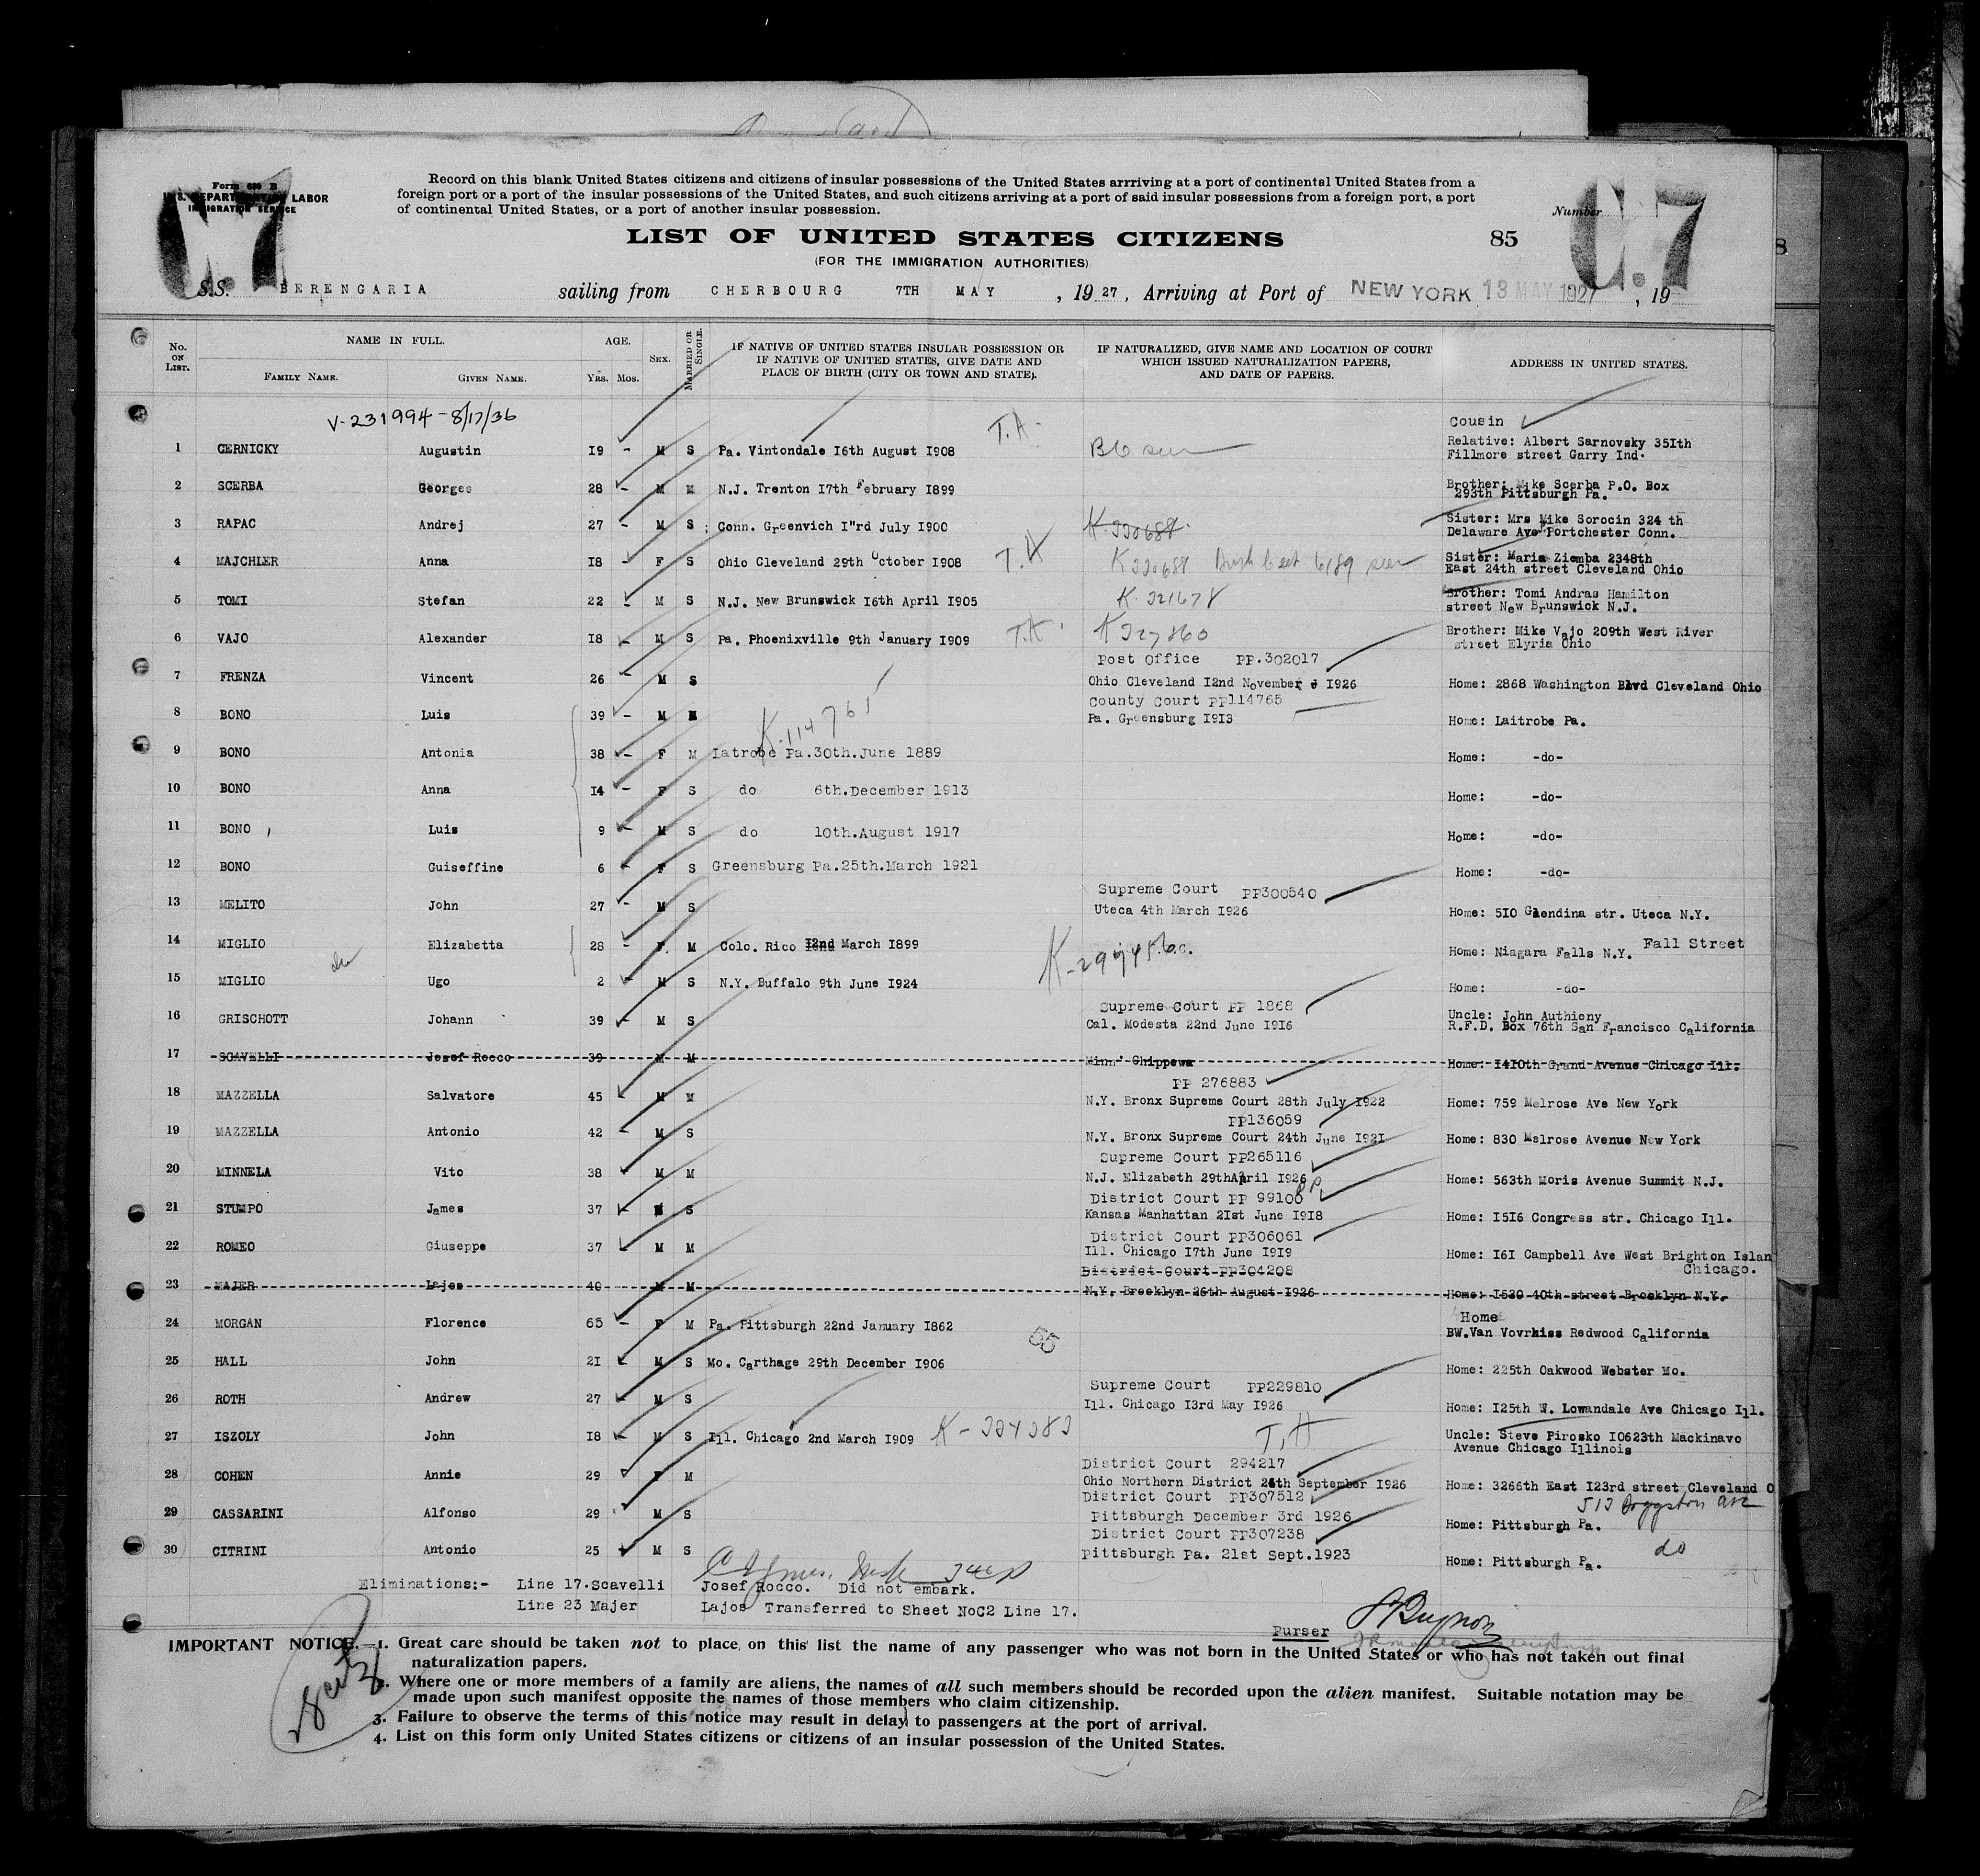 Form 630 B
U.S. DEPARTMENT OF LABOR
IMMIGRATION SERVICE
C.7
Record on this blank United States citizens and citizens of insular possessions of the United States arrriving at a port of continental United States from a
foreign port or a port of the insular possessions of the United States, and such citizens arriving at a port of said insular possessions from a foreign port, a port
of continental United States, or a port of another insular possession.
Number
C.7
LIST OF UNITED STATES CITIZENS 85
(FOR THE IMMIGRATION AUTHORITIES)
S.S. BERENGARIA sailing from CHERBOURG 7TH MAY , 19 27, Arriving at Port of NEW YORK 13 MAY 1927 , 19
No. ON LIST. NAME IN FULL. FAMILY NAME. GIVEN NAME. AGE. Yrs. Mos. SEX. MARRIED OR SINGLE. IF NATIVE OF UNITED STATES INSULAR POSSESSION OR IF NATIVE OF UNITED STATES, GIVE DATE AND PLACE OF BIRTH (CITY OR TOWN AND STATE). IF NATURALIZED, GIVE NAME AND LOCATION OF COURT WHICH ISSUED NATURALIZATION PAPERS, AND DATE OF PAPERS. ADDRESS IN UNITED STATES.
V-231994-8/17/36
Cousin
1 CERNICKY Augustin I9 - M S Pa. Vintondale I6th August I908 T.A. Relative: Albert Sarnovsky 35Ith
Fillmore street Garry Ind.
2 SCERBA Georges 28 - M M N.J. Trenton I7th February I899 Brother: Mike Scerba P.O. Box
293th Pittsburgh Pa.
3 RAPAC Andrej 27 - M S ; Conn. Greenvich I"rd July I900 K-330688 Sister: Mrs Mike Sorocin 324 th
Delaware Ave Portchester Conn.
4 MAJCHLER Anna I8 - F S Ohio Cleveland 29th October I908 T.A Sister: Maria Ziemba 2348th
East 24th street Cleveland Ohio
5 TOMI Stefan 22 - M S N.J. New Brunswick I6th April I905 K-321678 Brother: Tomi Andras Hamilton
street New Brunswick N.J.
6 VAJO Alexander I8 - M S Pa. Phoenixville 9th January I909 T.A. K327860 Brother: Mike Vajo 209th West River
street Elyria Ohio
Post Office PP.302017
7 FRENZA Vincent 26 - M S Ohio Cleveland I2nd November I926 Home: 2868 Washington Blvd Cleveland Ohio
County Court PP114765
8 BONO Luis 39 - M M K-114765 Pa. Greensburg I9I3 Home: Laitrobe Pa.
9 BONO Antonia 38 - F M Iatrobe Pa.30th.June 1889 Home: -do-
10 BONO Anna I4 - F S do 6th.December 1913 Home: -do-
11 BONO , Luis 9 - M S do 10th.August 1917 Home: -do-
12 BONO Guiseffine 6 - F S Greensburg Pa.25th.March 1921 Home: -do-
Supreme Court PP300540
13 MELITO John 27 - M S Uteca 4th March I926 Home: 5I0 Glendina str. Uteca N.Y.
14 MIGLIO Elizabetta 28 - F M Colo. Rico I2nd March I899 Home: Niagara Falls N.Y. Fall Street
15 MIGLIO Ugo 2 - M S N.Y. Buffalo 9th June I924 Home: -do-
Supreme Court PP 1868
16 GRISCHOTT Johann 39 - M S Cal. Modesta 22nd June I9I6 Uncle: John Authieny
R.F.D. Box 76th San Francisco California
17 SCAVELLI Josef Rocco 39 M M Minn' Chippewa Home: I4I0th Grand Avenue Chicago Ill.
PP 276883
18 MAZZELLA Salvatore 45 - M M N.Y. Bronx Supreme Court 28th July I922 Home: 759 Melrose Ave New York
PP136059
19 MAZZELLA Antonio 42 - M S N.Y. Bronx Supreme Court 24th June I92I Home: 830 Melrose Avenue New York
Supreme Court PP265116
20 MINNELA Vito 38 M M N.J. Elizabeth 29thApril I926 Home: 563th Moris Avenue Summit N.J.
District Court PP 99100
21 STUMPO James 37 - M S Kansas Manhattan 2Ist June I9I8 Home: I5I6 Congress str. Chicago Ill.
District Court PP306061
22 ROMEO Giuseppe 37 M M Ill. Chicago I7th June I9I9 Home: I6I Campbell Ave West Brighton Islan
Chicago.
District Court PP304208
23 MAJER Lajos 40 M M N.Y. Brooklyn 26th August I926 Home: I530 40th street Brooklyn N.Y.
Home
24 MORGAN Florence 65 - F M Pa. Pittsburgh 22nd January I862 BW.Van Vovrhiss Redwood California
25 HALL John 2I - M S Mo. Carthage 29th December I906 Home: 225th Oakwood Webster Mo.
Supreme Court PP229810
26 ROTH Andrew 27 - M S Ill. Chicago I3rd May I926 Home: I25th W. Lowandale Ave Chicago Ill.
27 ISZOLY John I8 - M S Ill. Chicago 2nd March I909 K-324383 T.A Uncle: Steve Pirosko I0623th Mackinavo
Avenue Chicago Illinois
District Court 294217
28 COHEN Annie 29 F M Ohio Northern District 26th September I926 Home: 3266th East I23rd street Cleveland O
District Court PP307512
29 CASSARINI Alfonso 29 M S Pittsburgh December 3rd 1926 Home: Pittsburgh Pa.
District Court PP307238
30 CITRINI Antonio 25 - M S Pittsburgh Pa. 21st Sept.1923 Home: Pittsburgh Pa. do
Eliminations:- Line 17.Scavelli Josef Rocco. Did not embark.
Line 23 Majer Lajos Transferred to Sheet NoC2 Line 17.
Purser
IMPORTANT NOTICE.—1. Great care should be taken not to place on this list the name of any passenger who was not born in the United States or who has not taken out final
naturalization papers.
2. Where one or more members of a family are aliens, the names of all such members should be recorded upon the alien manifest. Suitable notation may be
made upon such manifest opposite the names of those members who claim citizenship.
3. Failure to observe the terms of this notice may result in delay to passengers at the port of arrival.
4. List on this form only United States citizens or citizens of an insular possession of the United States.